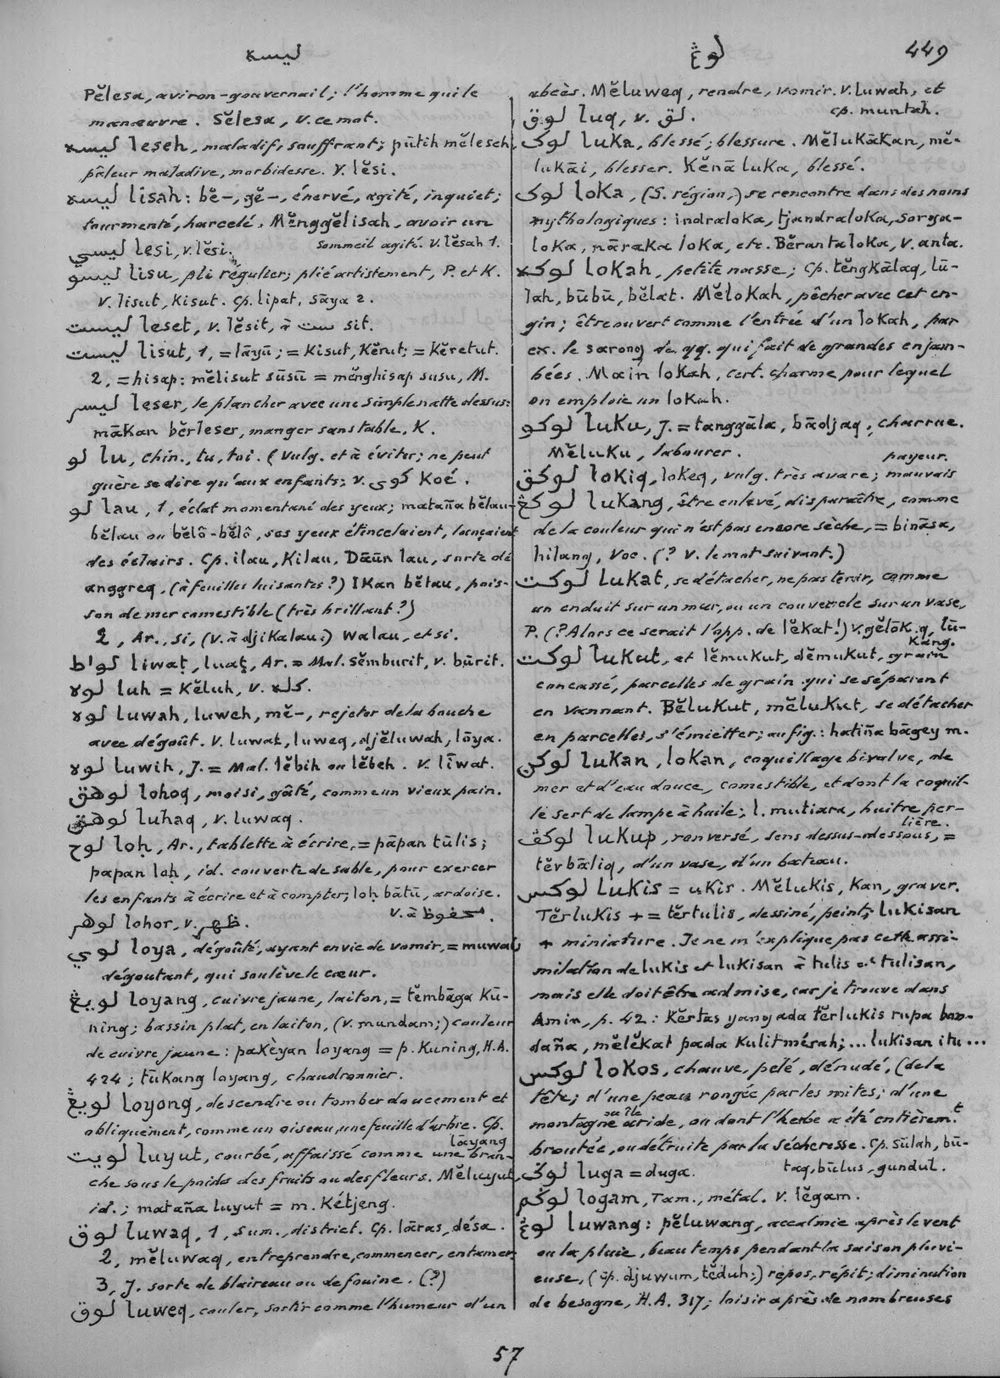 ليسه
لوڠ
449
Pĕlesa, aviron-gouvernail; l'homme qui le
manœuvre. Sĕlesa, v. ce mot.
ليسه leseh, maladif, souffrant; pūtih mĕleseh,
pâleur maladive, morbidesse. V. lĕsi.
ليسه lisah: bĕ-, gĕ-, énervé, agité, inquiet;
tourmenté, harcelé. Mĕnggĕlisah, avoir un
sommeil agité. V. lĕsah 1.
ليسي lesi, v. lĕsi.
ليسو lisu, pli régulier; plié artistement, P. et K.
V. lisut, Kisut. Cp. lipat, sāya 2.
ليست leset, v. lĕsit, à ست sit.
ليست lisut, 1, = lāyū; = Kisut, Kĕrut; = Kĕretut.
2, = hisap: mĕlisut sūsū = mĕnghisap susu, M.
ليسر leser, le plancher avec une simple natte dessus:
mākan bĕrleser, manger sans table, K.
لو lu, chin., tu, toi. (Vulg. et à éviter; ne peut
guère se dire qu'aux enfants; v. كوي Koé.
لو lau, 1, éclat momentané des yeux; mataña bĕlau-
bĕlau ou bĕlô-bĕlô, ses yeux étincelaient, lançaient
des éclairs. Cp. ilau, Kilau. Dāūn lau, sorte de
anggreq, (à feuilles luisantes?) Ikan bĕlau, pois-
son de mer comestible (très brillant?)
2, Ar., si, (v. à djikalau;) walau, et si.
لواط liwaṭ, luaṭ, Ar. = Mal. sĕmburit, v. būrit.
لوه luh = Kĕluh, v. كله.
لوه luwah, luweh, mĕ-, rejeter de la bouche
avec dégoût. V. luwat, luweq, djĕluwah, lōya.
لوه luwih, J. = Mal. lĕbih ou lĕbeh. V. līwat.
لوهق lohoq, moisi, gâté, comme un vieux pain.
لوهق luhaq, v. luwaq.
لوح loḥ, Ar., tablette à écrire, = pāpan tūlis;
papan loḥ, id. couverte de sable, pour exercer
les enfants à écrire et à compter; loḥ bātū, ardoise.
V. à محفوظ.
لوهر lohor, v. ظهر.
لوي loya, dégoûté, ayant envie de vomir, = muwaq
dégoutant, qui soulève le cœur.
لويڠ loyang, cuivre jaune, laiton, = tĕmbāga Kū-
ning; bassin plat, en laiton, (v. mundam;) couleur
de cuivre jaune: pakèyan loyang = p. Kuning, H.A.
424; tūkang loyang, chaudronnier.
لويڠ loyong, descendre ou tomber doucement et
obliquement, comme un oiseau, une feuille d'arbre. Cp.
lāyang
لويت luyut, courbé, affaissé comme une bran-
che sous le poids des fruits ou des fleurs. Mĕluyut,
id.; mataña luyut = m. Kétjeng.
لوق luwaq, 1, Sum., district. Cp. lāras, désa.
2, mĕluwaq, entreprendre, commencer, entamer
3, J. sorte de blaireau ou de fouine. (?)
لوق luweq, couler, sortir comme l'humeur d'un
abcès. Mĕluweq, rendre, vomir. V. luwah, et
cp. muntah.
لوق luq, v. لق.
لوک luka, blessé; blessure. Mĕlukākan, mĕ-
lukāi, blesser. Kĕnā luka, blessé.
لوک loka, (S. région,) se rencontre dans des noms
mythologiques: indraloka, tjandraloka, sorga-
loka, nāraka loka, etc. Bĕrantaloka, v. anta.
لوكه lokah, petite nasse; cp. tĕngkālaq, lū-
lah, būbū, bĕlat. Mĕlokah, pêcher avec cet en-
gin; être ouvert comme l'entrée d'un lokah, par
ex. le sarong de qq. qui fait de grandes enjam-
bées. Māin lokah, cert. charme pour lequel
on emploie un lokah.
لوكو luku, J. = tanggāla, bādjaq, charrue.
Mĕluku, labourer.
payeur.
لوكق lokiq, lokeq, vulg. très avare; mauvais
لوكڠ lukang, être enlevé, disparaître, comme
de la couleur qui n'est pas encore sèche, = bināsa,
hilang, Voc. (? V. le mot suivant.)
لوكت lukat, se détacher, ne pas tenir, comme
un enduit sur un mur, ou un couvercle sur un vase,
P. (? Alors ce serait l'app. de lĕkat!) V. gĕlōk.q, lū-
kang.
لوكت lukut, et lĕmukut, dĕmukut, grain
concassé, parcelles de grain qui se séparent
en vannant. Bĕlukut, mĕlukut, se détacher
en parcelles, s'émietter; au fig.: hatiña bāgey m.
لوكن lukan, lokan, coquillage bivalve, de
mer et d'eau douce, comestible, et dont la coquil-
le sert de lampe à huile; l. mutiara, huitre per-
lière.
لوكڤ lukup, renversé, sens dessus-dessous, =
tĕrbāliq, d'un vase, d'un bateau.
لوكس lukis = ukis. Mĕlukis, Kan, graver.
Tĕrlukis + = tĕrtulis, dessiné, peint; lukisan
+ miniature. Je ne m'explique pas cette assi-
milation de lukis et lukisan à tulis et tulisan,
mais elle doit être admise, car je trouve dans
Amir, p. 42: Kĕrtas yang ada tĕrlukis rupa ban-
daña, mĕlĕkat pada kulit mérah; ... lukisan itu ...
لوكس lokos, chauve, pelé, dénudé, (de la
tête; d'une peau rongée par les mites; d'une
montagne ou île aride, ou dont l'herbe a été entièremt
broutée, ou détruite par la sécheresse. Cp. sūlah, bū-
taq, būlus, gundul.
لوک luga = duga.
لوڬم logam, Tam., métal. V. lĕgam.
لوڠ luwang: pĕluwang, accalmie après le vent
ou la pluie, beau temps pendant la saison pluvi-
euse, (cp. djuwum, tĕduh;) repos, répit; diminution
de besogne, H.A. 317; loisir après de nombreuses
57